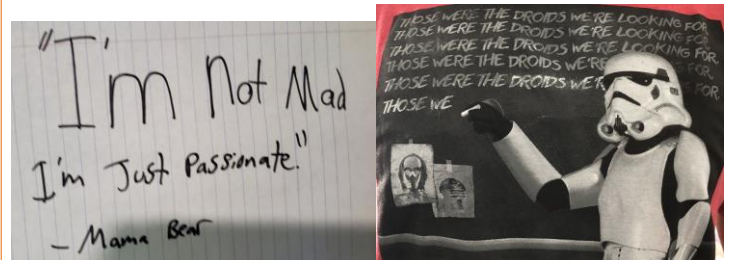 "I'm Not Mad
I'm Just Passionate."
- Mama Bear
THOSE WERE THE DROIDS WE'RE LOOKING FOR
THOSE WERE THE DROIDS WE'RE LOOKING FOR
THOSE WERE THE DROIDS WE'RE LOOKING FOR
THOSE WERE THE DROIDS WE'RE FOR
THOSE WERE THE DROIDS WE'R FOR
THOSE WE